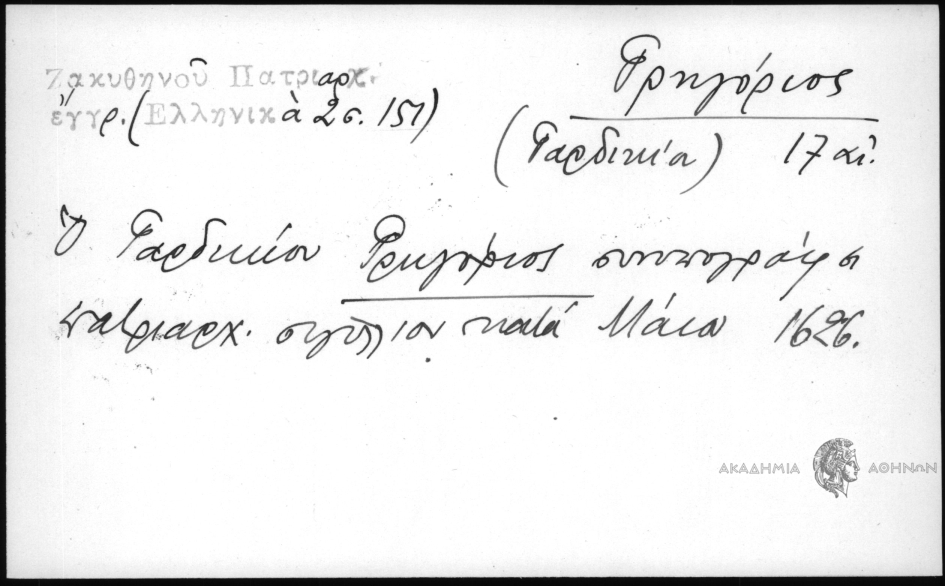 Ζακυθηνοῦ Πατριαρχ.
ἔγγρ. (Ἑλληνικὰ 2 σ. 151)
Γρηγόριος
(Γαρδικίου) 17 αἰ.
Ὁ Γαρδικίου Γρηγόριος συνυπογράφει
πατριαρχ. σιγίλλιον κατά Μάιον 1626.
ΑΚΑΔΗΜΙΑ ΑΘΗΝΩΝ